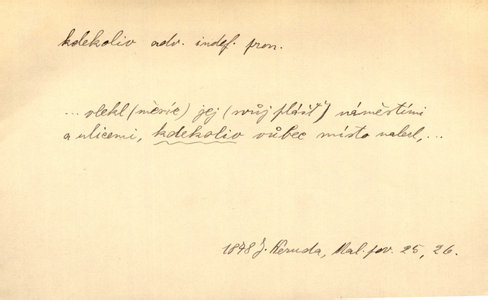 kdekoliv adv. indef. pron.
... vlekl (měsíc) jej (svůj plášť) náměstími
a ulicemi, kdekoliv vůbec místo nalezl, ...
1878 J. Neruda, Mal. pov. 25, 26.